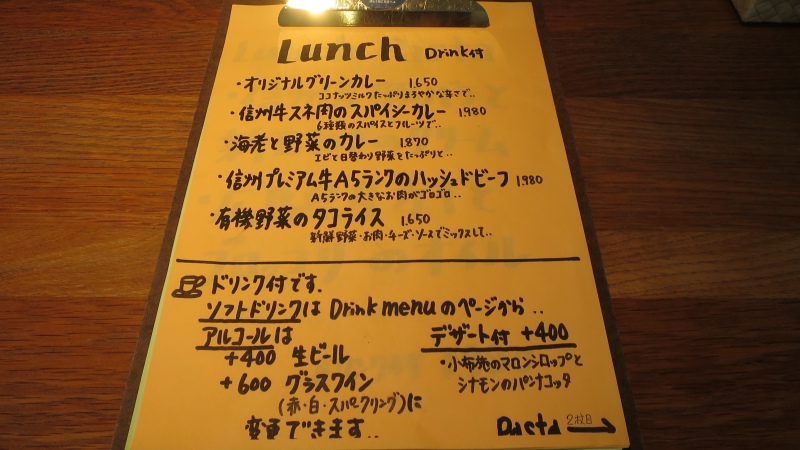 Lunch Drink付
・オリジナルグリーンカレー 1.650
ココナッツミルクたっぷりまろやかな辛さで..
・信州牛スネ肉のスパイシーカレー 1.980
6種類のスパイスとフルーツで..
・海老と野菜のカレー 1.870
エビと日替わり野菜をたっぷりと..
・信州プレミアム牛A5ランクのハッシュドビーフ 1.980
A5ランクの大きなお肉がゴロゴロ..
・有機野菜のタコライス 1.650
新鮮野菜・お肉・チーズ・ソースでミックスして..
ドリンク付です.
ソフトドリンクは Drink menuのページから..
アルコールは
+400 生ビール
+600 グラスワイン
(赤・白・スパークリング)に
変更できます..
デザート付 +400
・小布施のマロンシロップと
シナモンのパンナコッタ
Pasta 2枚目 →